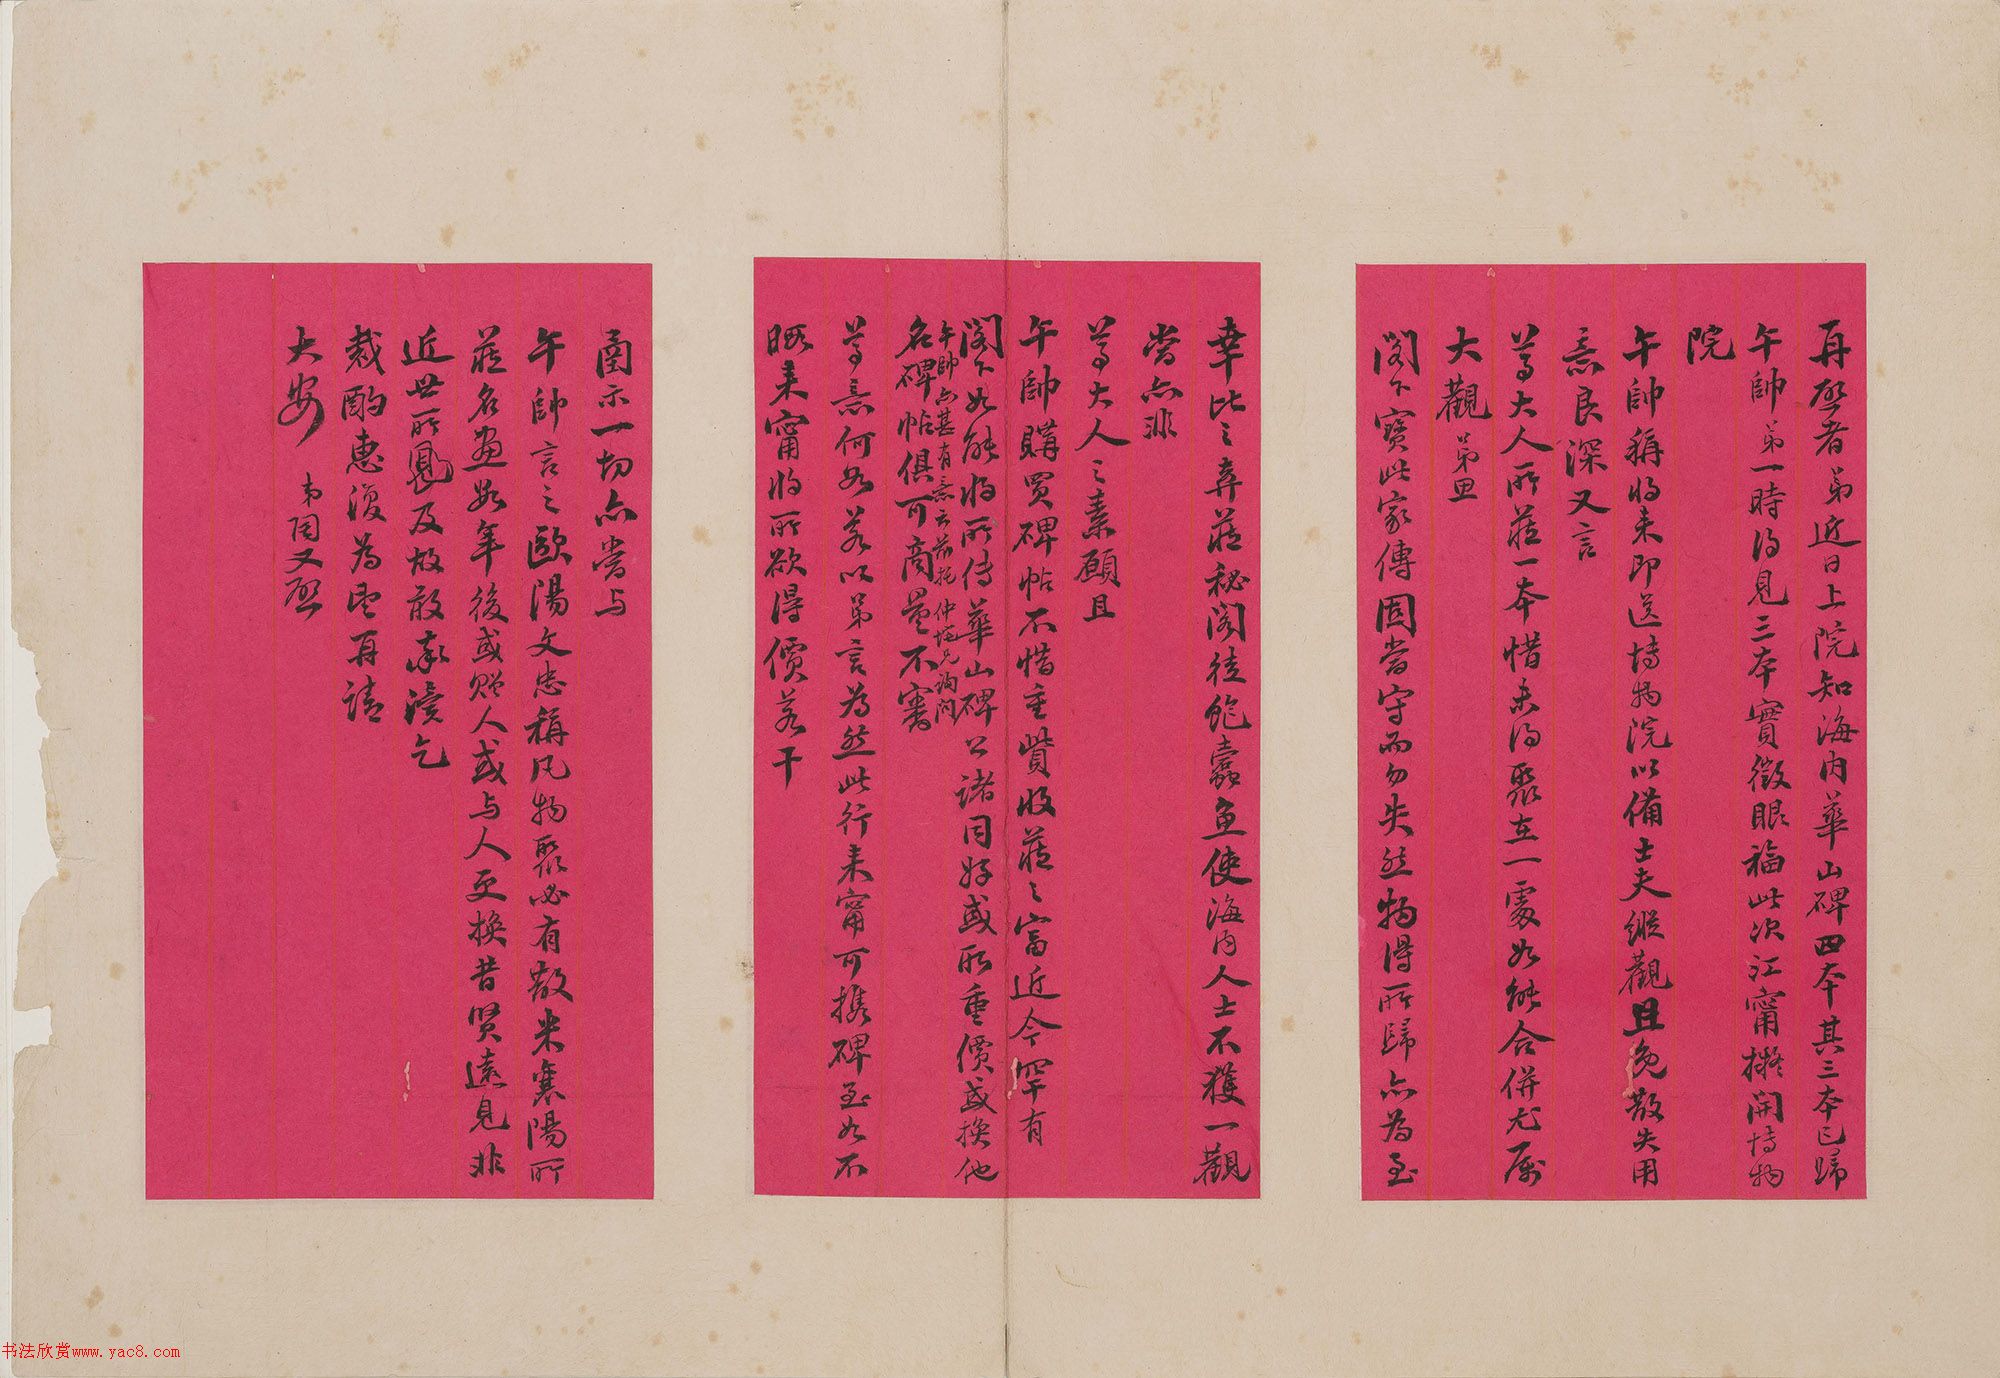 再啓者弟近日上院知海内華山碑四本其三本已歸
午帥弟一時得見三本實徵眼福此次江甯擬開博物
院
午帥稱將来即送博物院以備士夫縱觀且免散失用
意良深又言
尊大人所藏一本惜未得聚在一處如能合併尤属
大觀弟思
閣下寶此家傳固當守而勿失然物得所歸亦為至
幸比之弆藏秘閣徒飽蠹魚使海内人士不獲一觀
當亦非
尊大人之素願且
午帥購買碑帖不惜重貲收藏之富近今罕有
閣下如能将所傳華山碑公諸同好或取重價或換他
名碑帖俱可商量不審
午帥亦甚有意云前托仲垞兄詢問
尊意何如若以弟言為然此行来甯可携碑至如不
暇来甯将所欲得價若干
圅示一切亦當与
午帥言之歐陽文忠稱凡物聚必有散米襄陽所
藏名畫數年後或贈人或与人更換昔賢遠見非
近世所夙及故敢奉瀆乞
裁酌惠復為盼再請
大安 弟同又啓
书法欣赏www.yac8.com